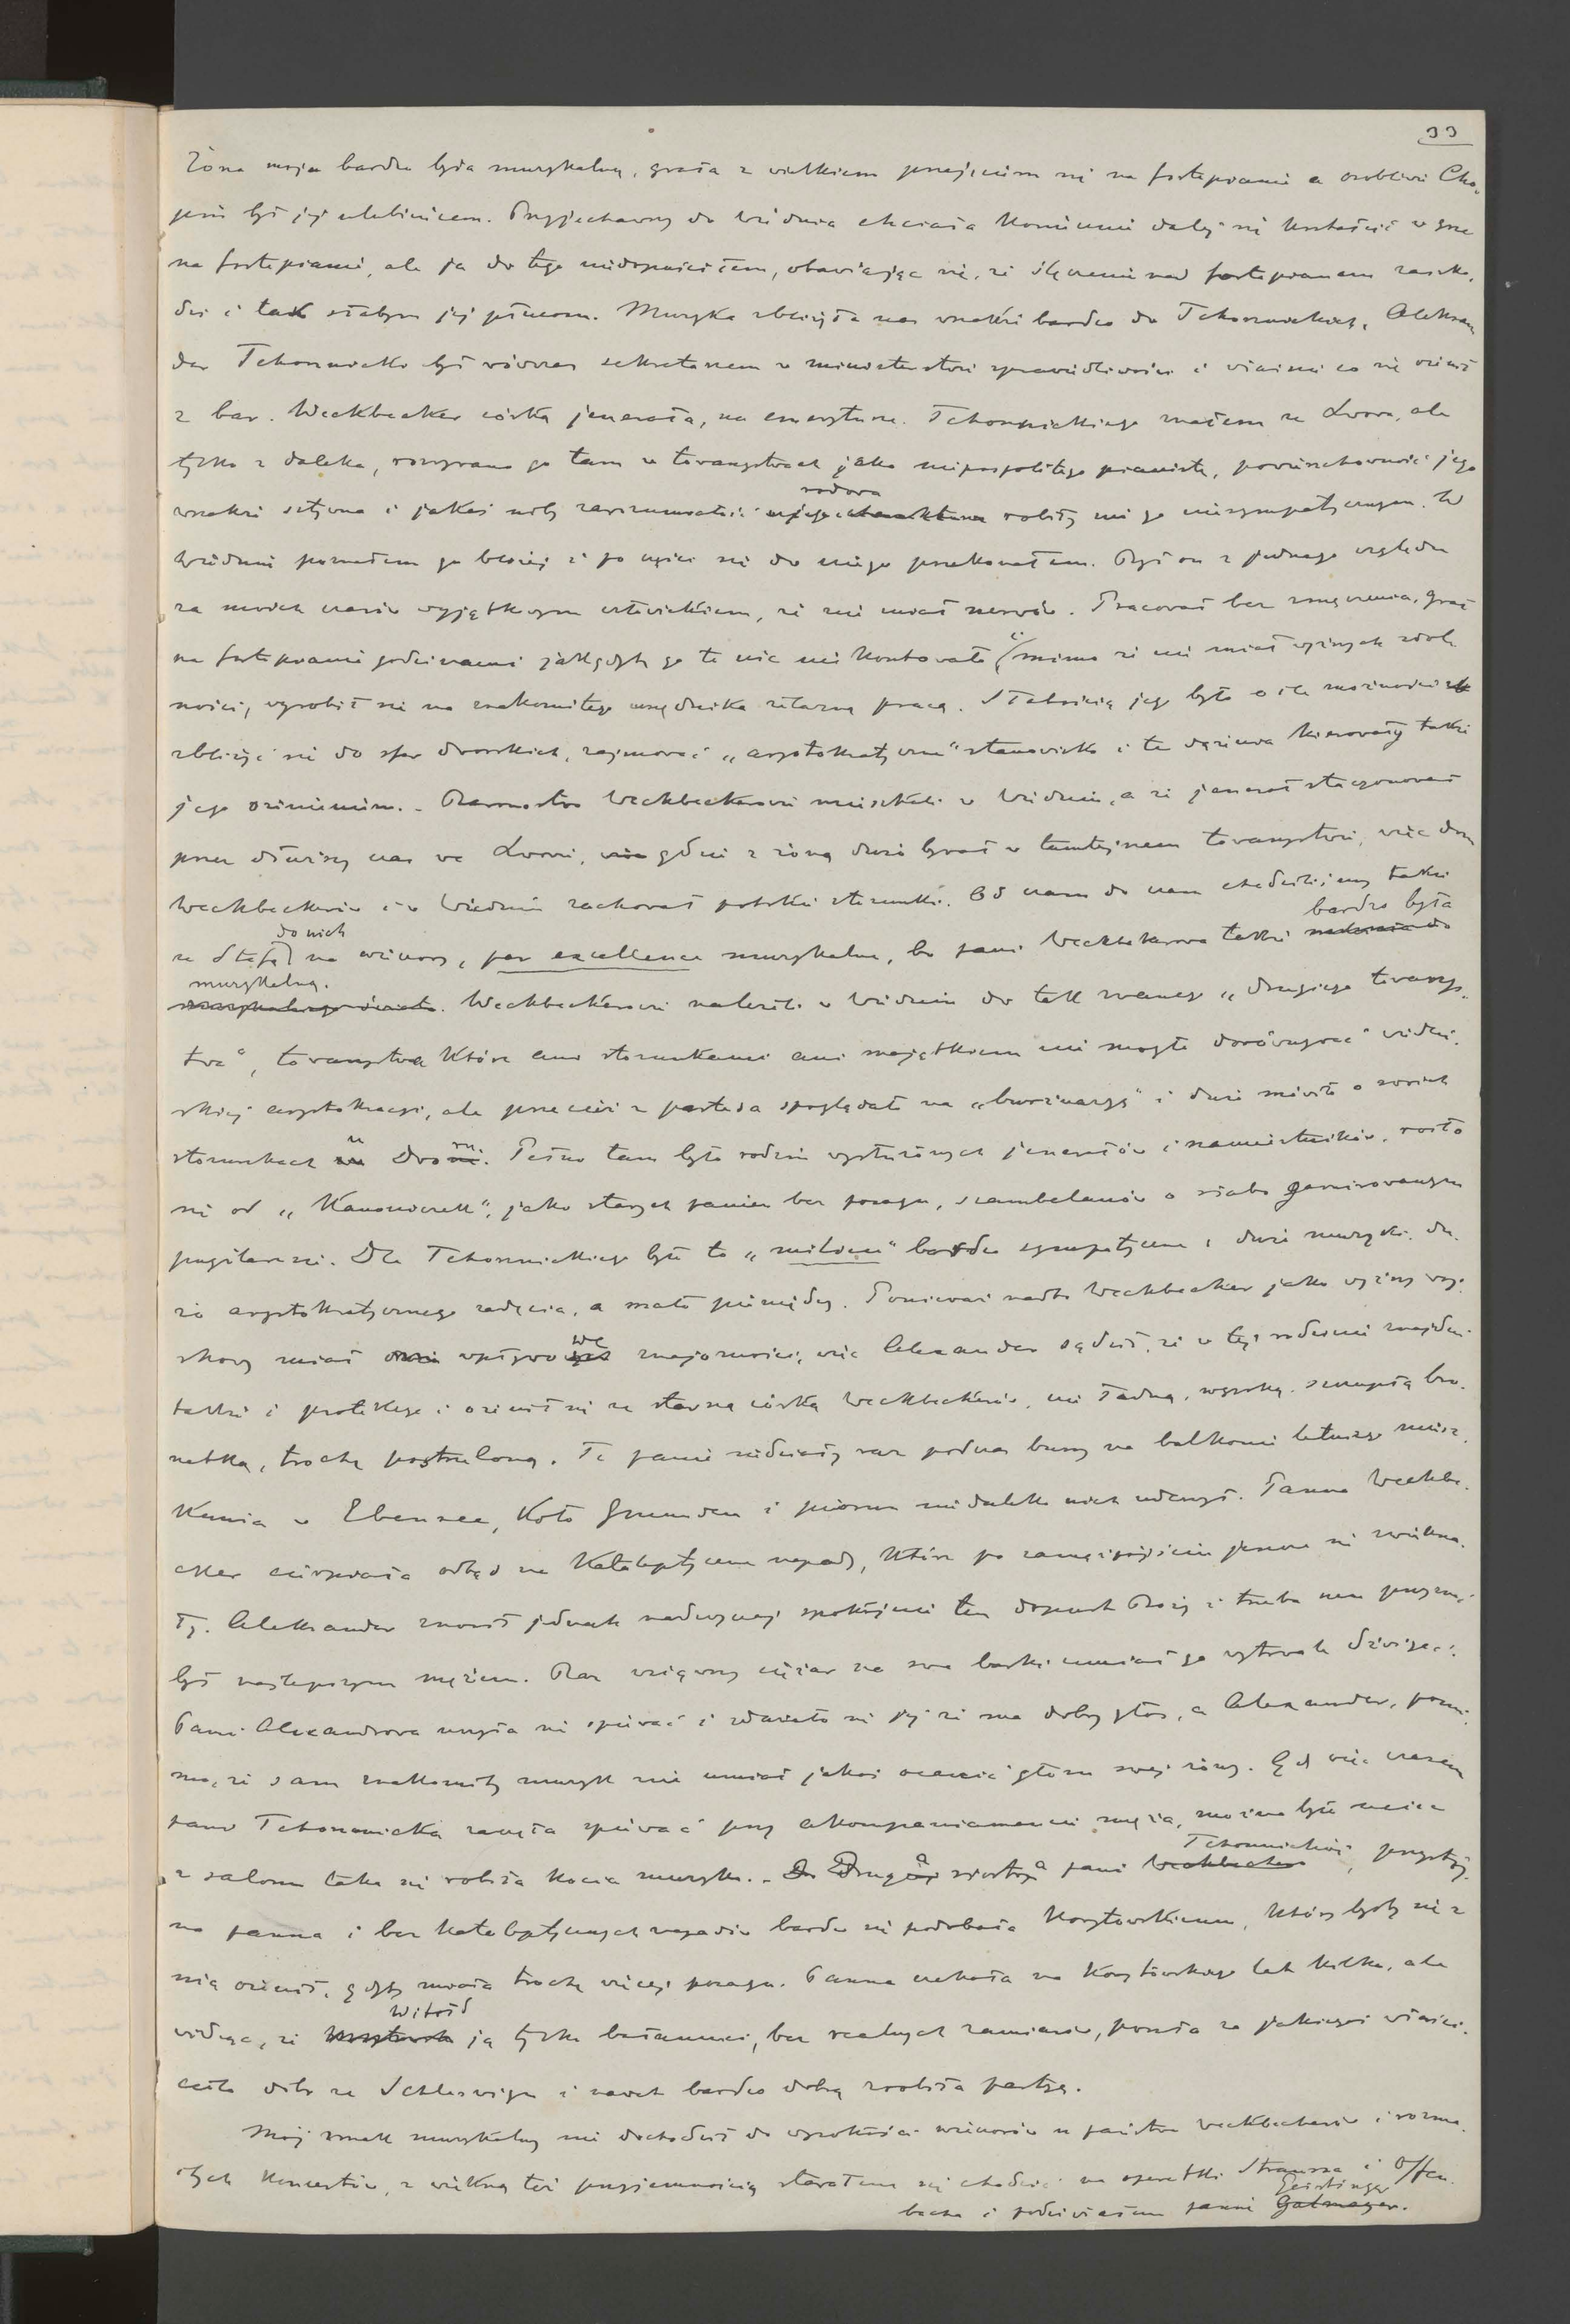 33
Żona moja bardzo była muzykalną, grała z wielkiem przejęciem się na fortepianie a osobliwie Cho-
pin był jej ulubieńcem. Przyjechawszy do Wiednia chciała koniecznie dalej się kształcić w grze
na fortepianie, ale ja do tego niedopuściłem, obawiając się, że ślęczenie nad fortepianem zaszko-
dzi i tak słabym jej płucom. Muzyka zbliżyła nas wszakże bardzo do Tchorznickich. Aleksan
der Tchorznicki był wówczas sekretarzem w ministerstwie sprawiedliwości i właśnie co się ożenił
z bar. Weckbecker córką jenerała, na emeryturze. Tchorznickiego znałem ze Lwowa, ale
tylko z daleka, rozrywano go tam w towarzystwach jako niepospolitego pianistę, powierzchowność jego
wszakże sztywna i jakaś niby zarozumiałość rodowa robiły mi go niesympatycznym. W
Wiedniu poznałem go bliżej i po części się do niego przekonałem. Był on z jednego względu
za moich czasów wyjątkowym człowiekiem, że nie miał nerwów. Pracował bez zmęczenia, grał
na fortepianie godzinami jakgdyby go to nic nie kosztowało i (mimo że nie miał wyższych zdol-
ności, wyrobił się na znakomitego urzędnika żelazną pracą. Słabością jego było o ile możności
zbliżyć się do sfer dworskich, zajmować „arystokratyczne" stanowisko i te dążenia kierowały także
jego ożenieniem. - Baronostwo Weckbeckerowie mieszkali w Wiedniu, a że jenerał stacyonował
przez dłuższy czas we Lwowie, gdzie z żoną dużo bywał w tamtejszem towarzystwie, więc dom
Weckbeckerów i w Wiedniu zachował polskie stosunki. Od czasu do czasu chodziliśmy także
ze Stefą do nich na wieczory, par excellence muzykalne, bo pani Weckbekerowa także bardzo była
muzykalną. Weckbeckerowie należeli w Wiedniu do tak zwanego „drugiego towarzys-
twa", towarzystwa które ani stosunkami ani majątkiem nie mogło dorównywać wiedeń-
skiej arystokracyi, ale przecież z pańska spoglądało na „burżuazyę" i dużo mówiło o swoich
stosunkach u Dworu. Pełno tam było rodzin wysłużonych jenerałów i namiestników, roiło
się od „Kanoniczek", jako starych panien bez posagu, szambelanów o słabo garnirowanym
pugilaresie. Dla Tchorznickiego było to „milieu" bardzo sympatyczne, dużo muzyki, du-
żo arystokratycznego zadęcia, a mało pieniędzy. Ponieważ nadto Weckbecker jako wyższy woj-
skowy miał wpływowe znajomości, więc Alexander sądził, że w tej rodzinie znajdzie
także i protekcye i ożenił się ze starszą córką Weckbeckerów, nie ładną, wysoką, szczupłą bru-
netką, trochę postrzeloną. Te panie siedziały raz podczas burzy na balkonie letniego miesz-
kania w Ebensee, koło Gmunden i piorun niedaleko nich uderzył. Panna Weckbe-
cker cierpiała odtąd na kataleptyczne napady, które po zamążpójściu jeszcze się zwiększa-
ły. Aleksander znosił jednak nadzwyczaj spokojnie ten dopust Boży i trzeba mu przyznać
był najlepszym mężem. Raz wziąwszy ciężar na swe barki umiał go wytrwale dźwigać.
Pani Alexandrowa uczyła się śpiewać i zdawało się jej że ma dobry głos, a Alexander, pomi-
mo, że sam znakomity muzyk nie umiał jakoś ocenić głosu swej żony. Gdy więc czasem
pani Tchorznicka zaczęła śpiewać przy akompaniamencie męża, można było uciec
z salonu taka się robiła kocia muzyka. - Druga siostra pani Tchornickiej, przystoj-
na panna i bez kataleptycznych napadów bardzo się podobała Korytowskiemu, który byłby się z
nią ożenił, gdyby miała trochę więcej posagu. Panna czekała na Korytowskiego lat kilka, ale
widząc, że Witołd ją tylko bałamuci, bez realnych zamiarów, poszła za jakiegoś właści-
ciela dóbr ze Schleswigu i nawet bardzo dobrą zrobiła partyę.
Mój smak muzykalny nie dochodził do wysokości wieczorów u państwa Weckbeckerów i rozma-
itych koncertów, z większą też przyjemnością starałem się chodzić na operetki Straussa i Offen-
bacha i podziwiałem pannę Geistinger.